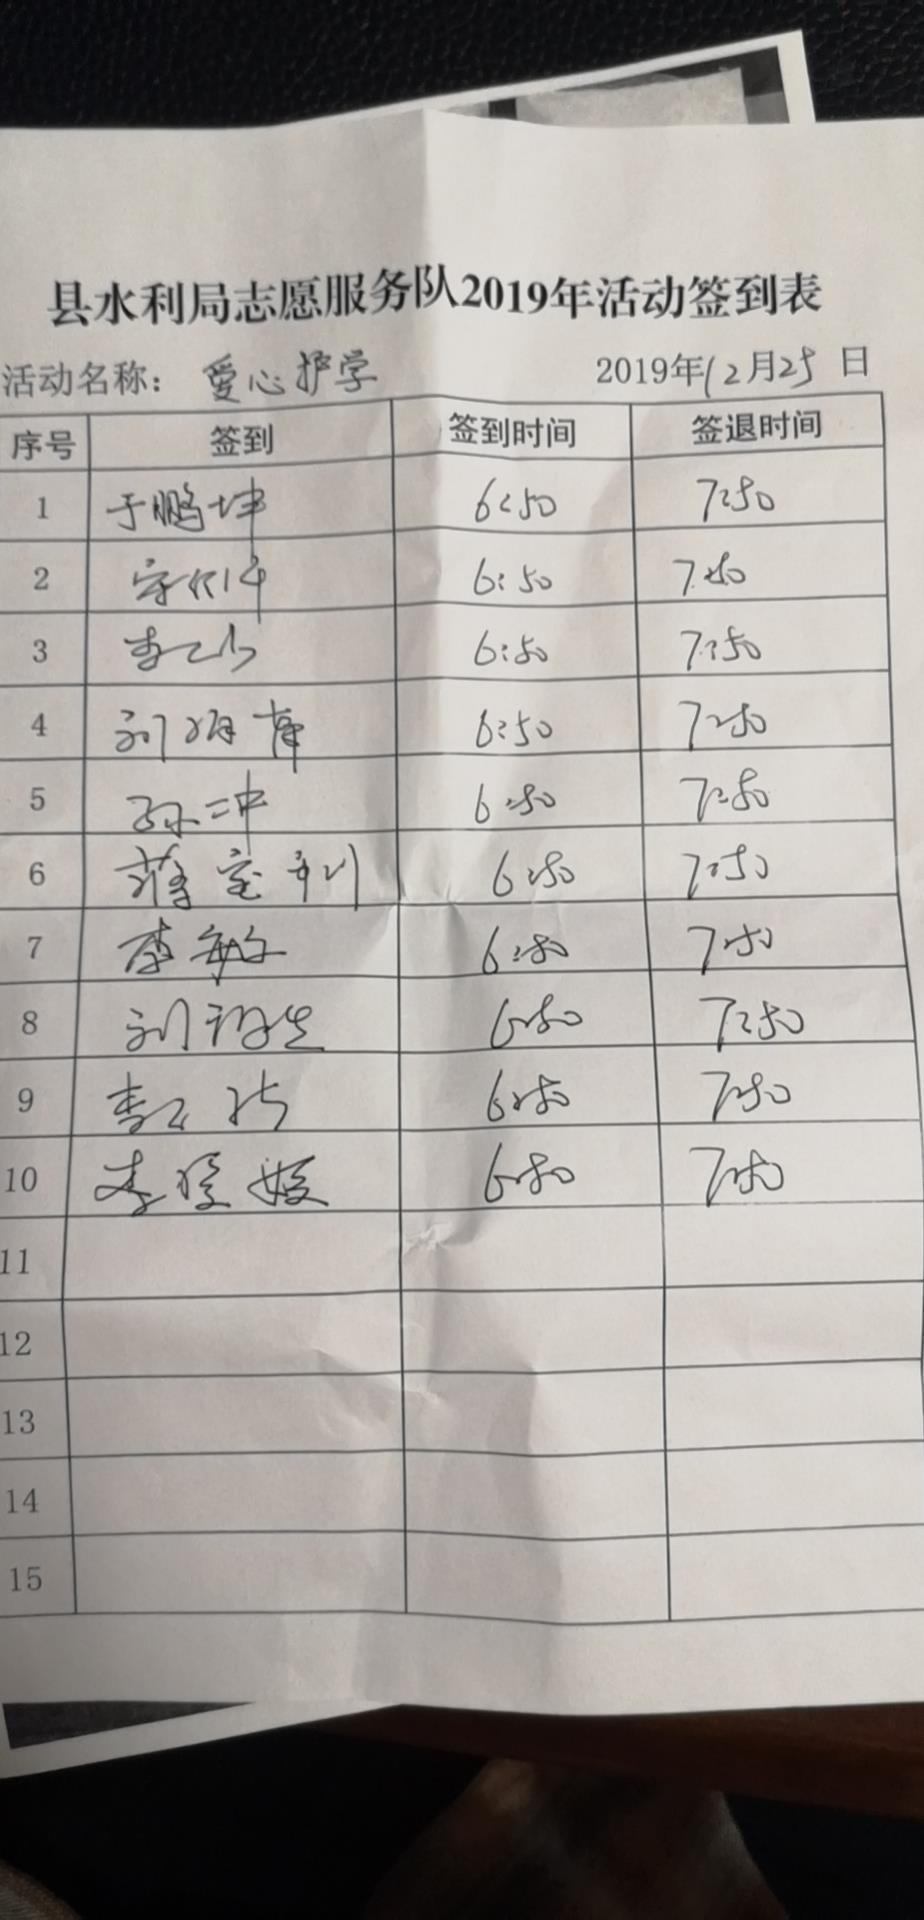 县水利局志愿服务队2019年活动签到表
活动名称：爱心护学 2019年12月25日
序号 签到 签到时间 签退时间
1 于鹏坤 6:50 7:50
2 6:50 7:50
3 李 6:50 7:50
4 刘 6:50 7:50
5 孙冲 6:50 7:50
6 蒋宝利 6:50 7:50
7 李敏 6:50 7:50
8 刘 生 6:50 7:50
9 李 6:50 7:50
10 李 6:50 7:50
11
12
13
14
15